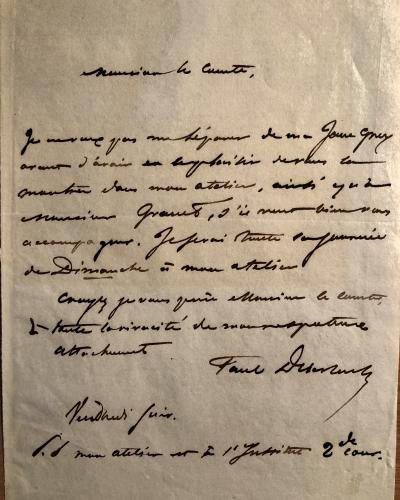 Monsieur le Comte,
Je ne veux pas me séparer de ma Jane Grey
avant d'avoir eu le plaisir de vous la
montrer dans mon atelier, ainsi qu'à
Monsieur Granet, s'il veut bien vous
accompagner. Je serai toute la journée
de Dimanche à mon atelier
Croyez je vous prie Monsieur le Comte,
à toute la vivacité de mon respectueux
attachement
Paul Delaroche
Vendredi soir.
P.S mon atelier est à l'Institut 2de cour.